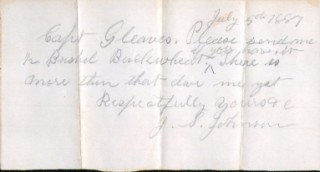 July 5th 1887
Capt Gleaves. Please send me
½ Bushel Buckwheat if you have it
there is
more than that due me yet
Respectfully yours &c
J. S. Johnson